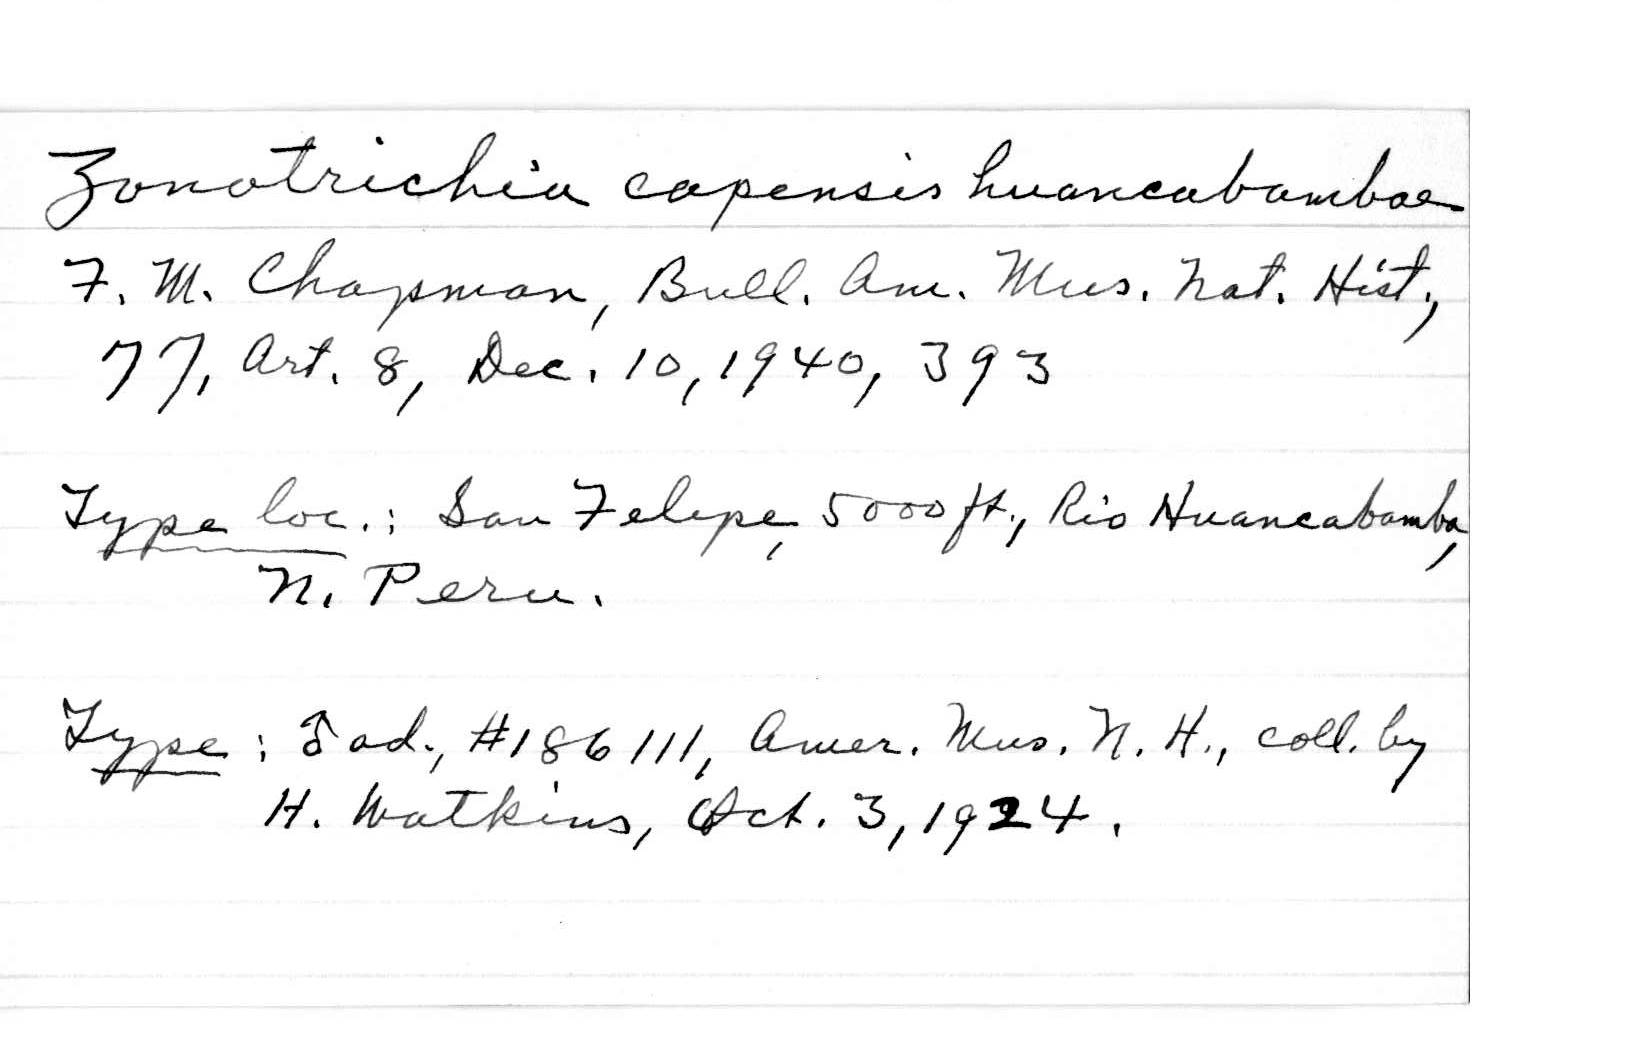 Zonotrichia capensis huancabambae
F. M. Chapman, Bull. Am. Mus. Nat. Hist.,
77, Art. 8, Dec. 10, 1940, 393
Type loc.: San Felipe, 5000 ft., Rio Huancabamba,
N. Peru.
Type: ♂ ad., #186111, Amer. Mus. N. H., coll. by
H. Watkins, Oct. 3, 1924.